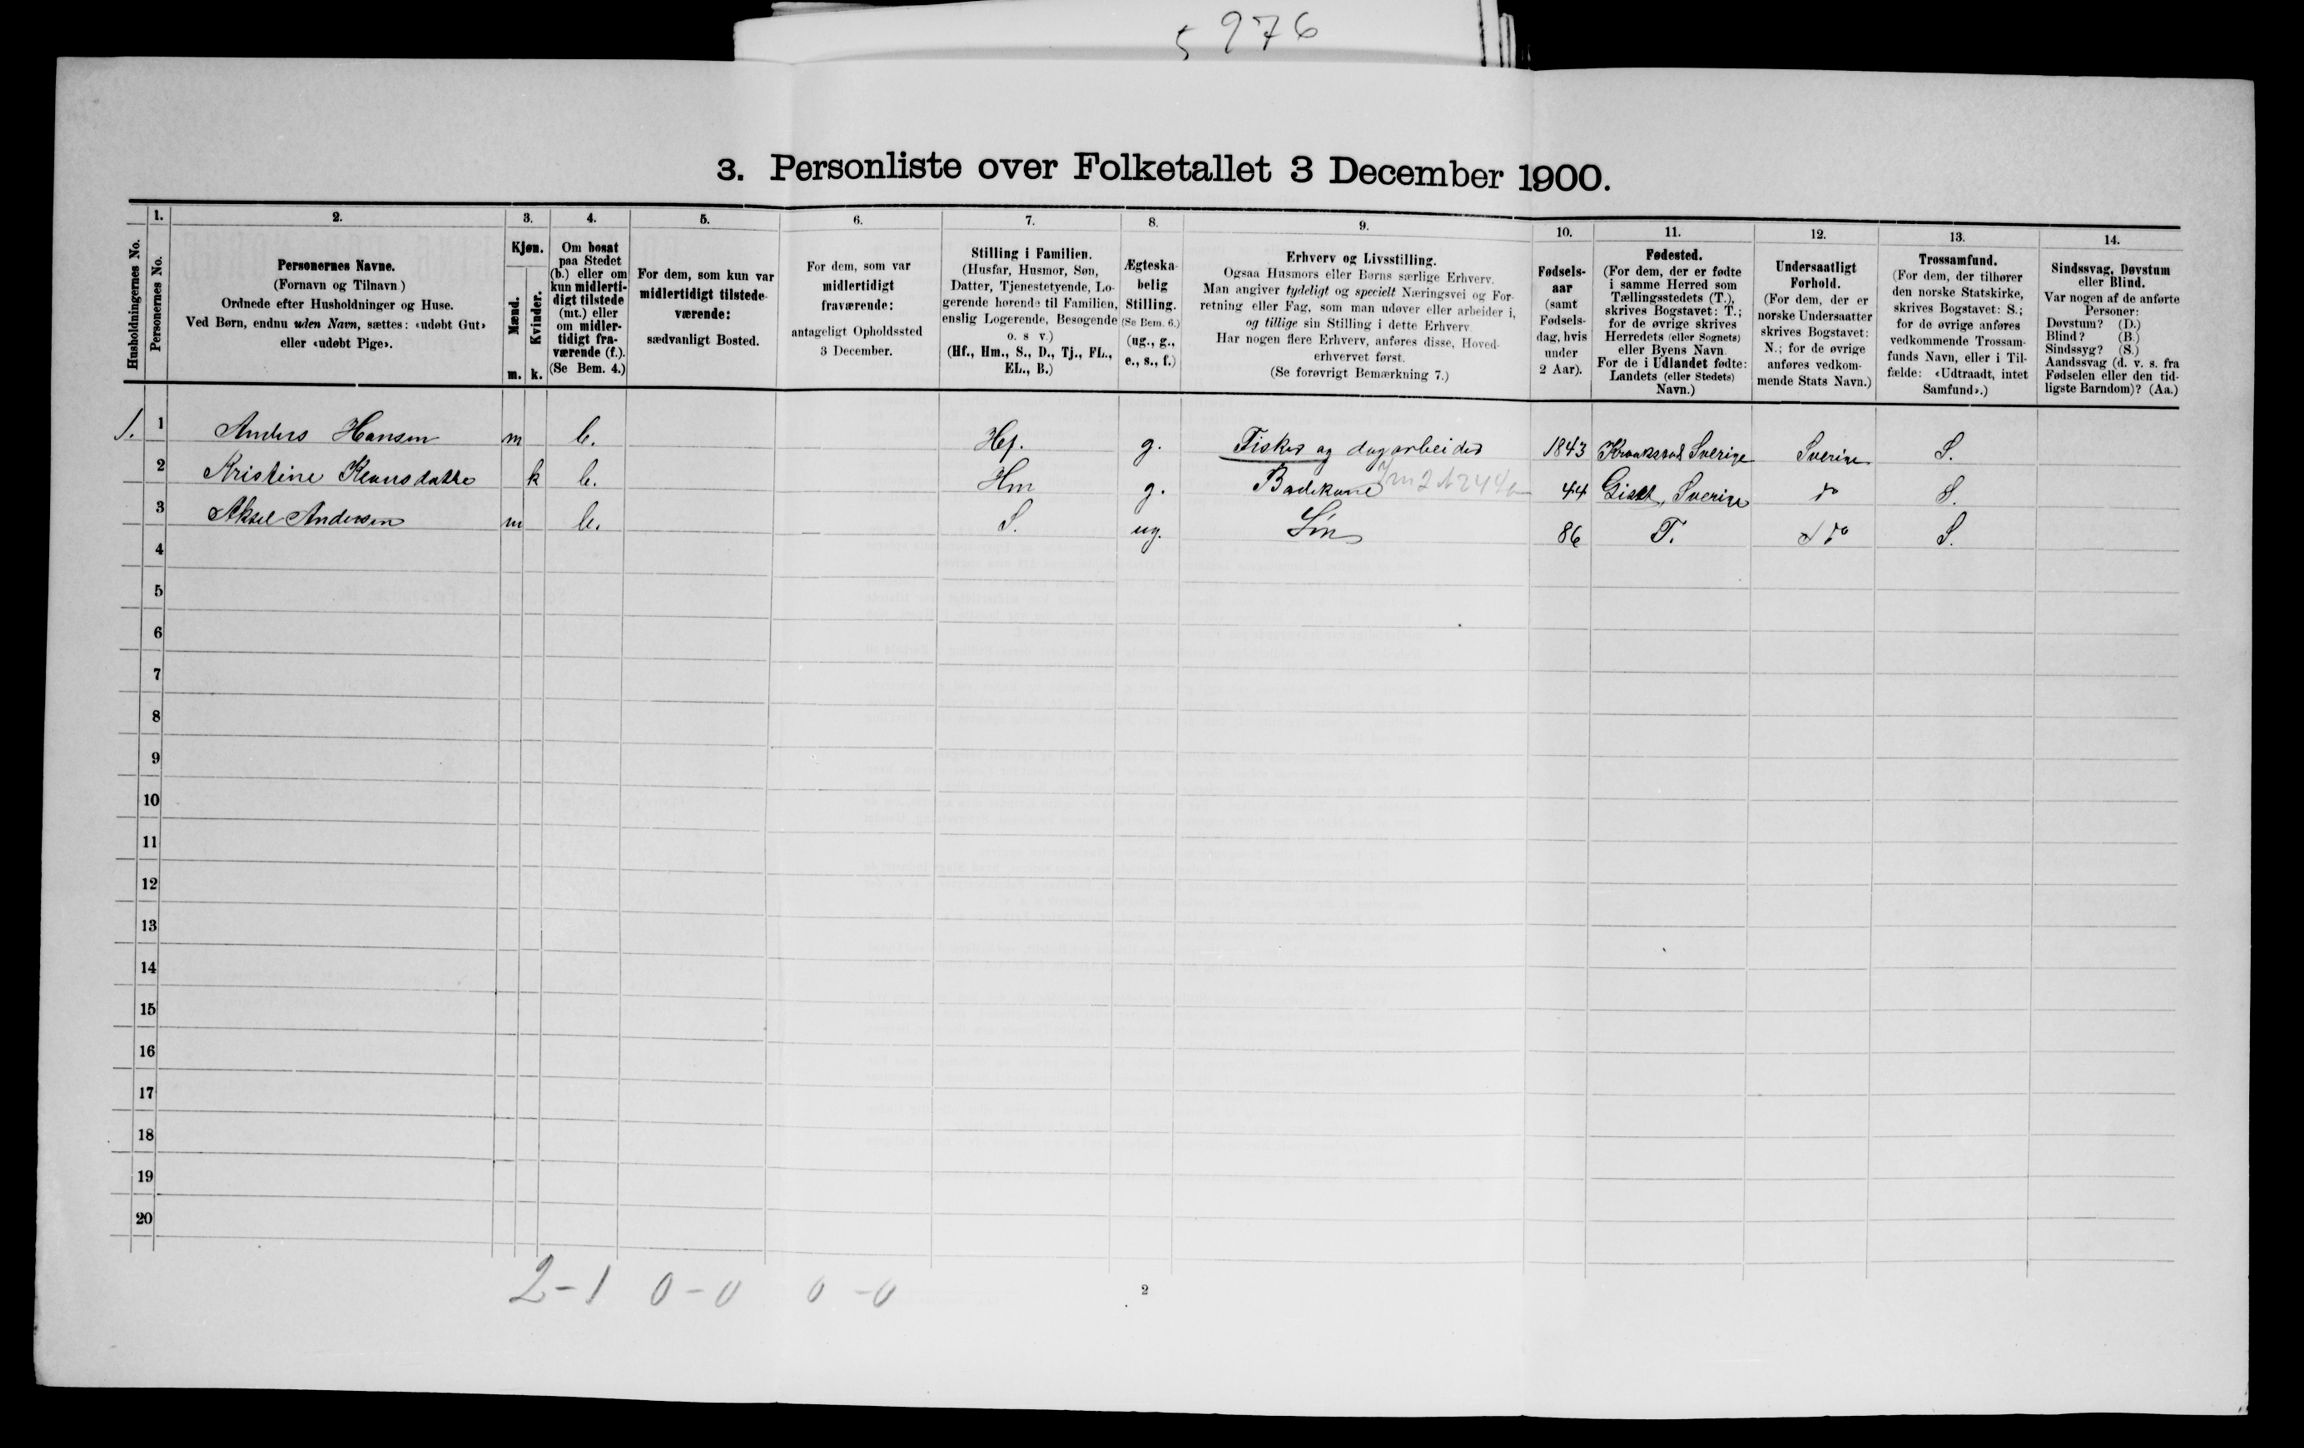 5 976
3. Personliste over Folketallet 3 December 1900.
Husholdningernes No.
1.
Personernes No.
2.
Personernes Navne.
(Fornavn og Tilnavn.)
Ordnede efter Husholdninger og Huse.
Ved Børn, endnu uden Navn, sættes: «udøbt Gut»
eller «udøbt Pige».
3.
Kjøn.
Mænd.
Kvinder.
m. k.
4.
Om bosat
paa Stedet
(b.) eller om
kun midlerti-
digt tilstede
(mt.) eller
om midler-
tidigt fra-
værende (f.).
(Se Bem. 4.)
5.
For dem, som kun var
midlertidigt tilstede-
værende:
sædvanligt Bosted.
6.
For dem, som var
midlertidigt
fraværende:
antageligt Opholdssted
3 December.
7.
Stilling i Familien.
(Husfar, Husmor, Søn,
Datter, Tjenestetyende, Lo-
gerende hørende til Familien,
enslig Logerende, Besøgende
o. s v.)
(Hf., Hm., S., D., Tj., FL.,
EL., B.)
8.
Ægteska-
belig
Stilling.
(Se Bem. 6.)
(ug., g.,
e., s., f.)
9.
Erhverv og Livsstilling.
Ogsaa Husmors eller Børns særlige Erhverv.
Man angiver tydeligt og specielt Næringsvei og For-
retning eller Fag, som man udøver eller arbeider i,
og tillige sin Stilling i dette Erhverv.
Har nogen flere Erhverv, anføres disse, Hoved-
erhvervet først.
(Se forøvrigt Bemærkning 7.)
10.
Fødsels-
aar
(samt
Fødsels-
dag, hvis
under
2 Aar).
11.
Fødested.
(For dem, der er fødte
i samme Herred som
Tællingsstedets (T.),
skrives Bogstavet: T.;
for de øvrige skrives
Herredets (eller Sognets)
eller Byens Navn.
For de i Udlandet fødte:
Landets (eller Stedets)
Navn.)
12.
Undersaatligt
Forhold.
(For dem, der er
norske Undersaatter
skrives Bogstavet:
N.; for de øvrige
anføres vedkom-
mende Stats Navn.)
13.
Trossamfund.
(For dem, der tilhører
den norske Statskirke,
skrives Bogstavet: S.;
for de øvrige anføres
vedkommende Trossam-
funds Navn, eller i Til-
fælde: «Udtraadt, intet
Samfund».)
14.
Sindssvag, Døvstum
eller Blind.
Var nogen af de anførte
Personer:
Døvstum? (D.)
Blind? (B.)
Sindssyg? (S.)
Aandssvag (d. v. s. fra
Fødselen eller den tid-
ligste Barndom)? (Aa.)
1. 1 Anders Hansen m b. Hf. g. Fisker og dagarbeider 1843 Sverige Sverige S.
2 Kristine Klausdatter k b. Hm g. Badekone 44 Sverige do S.
3 Aksel Andersen m b. S. ug. Søn 86 T. do S.
4
5
6
7
8
9
10
11
12
13
14
15
16
17
18
19
20
2-1 0-0 0-0
2